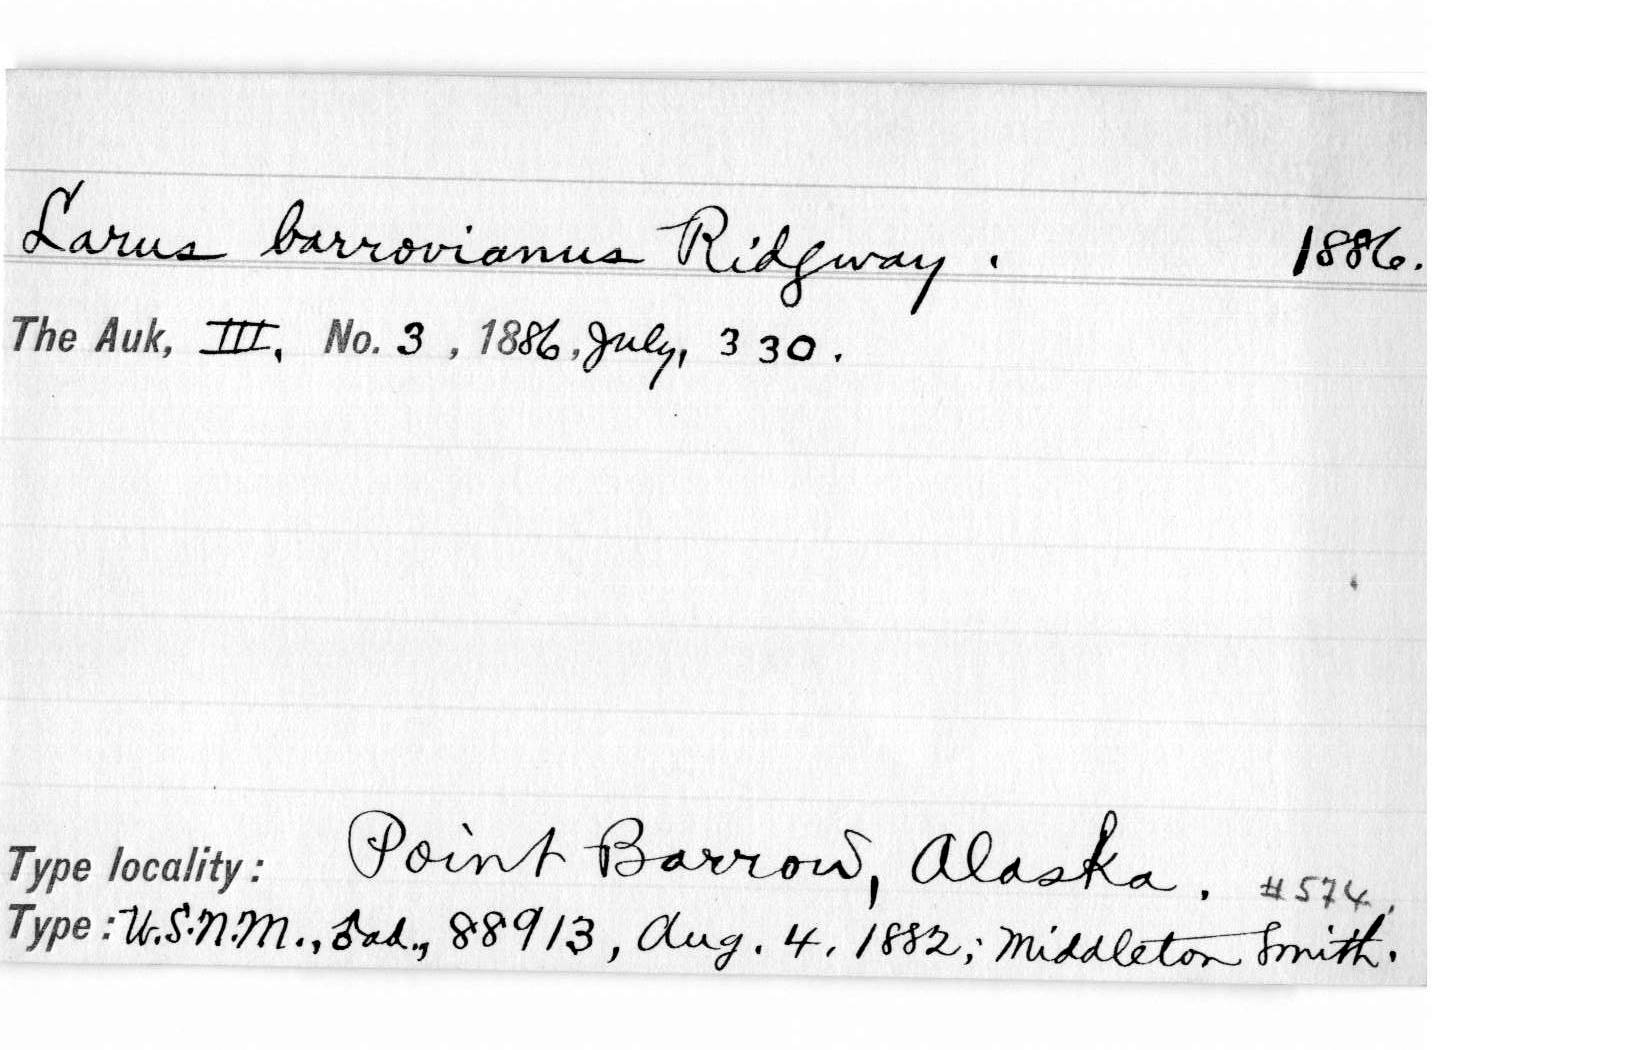 Larus barrovianus Ridgway. 1886.
The Auk, III, No. 3, 1886, July, 330.
Type locality: Point Barrow, Alaska. #574.
Type: U.S.N.M., ♂ad., 88913, Aug. 4, 1882; Middleton Smith.